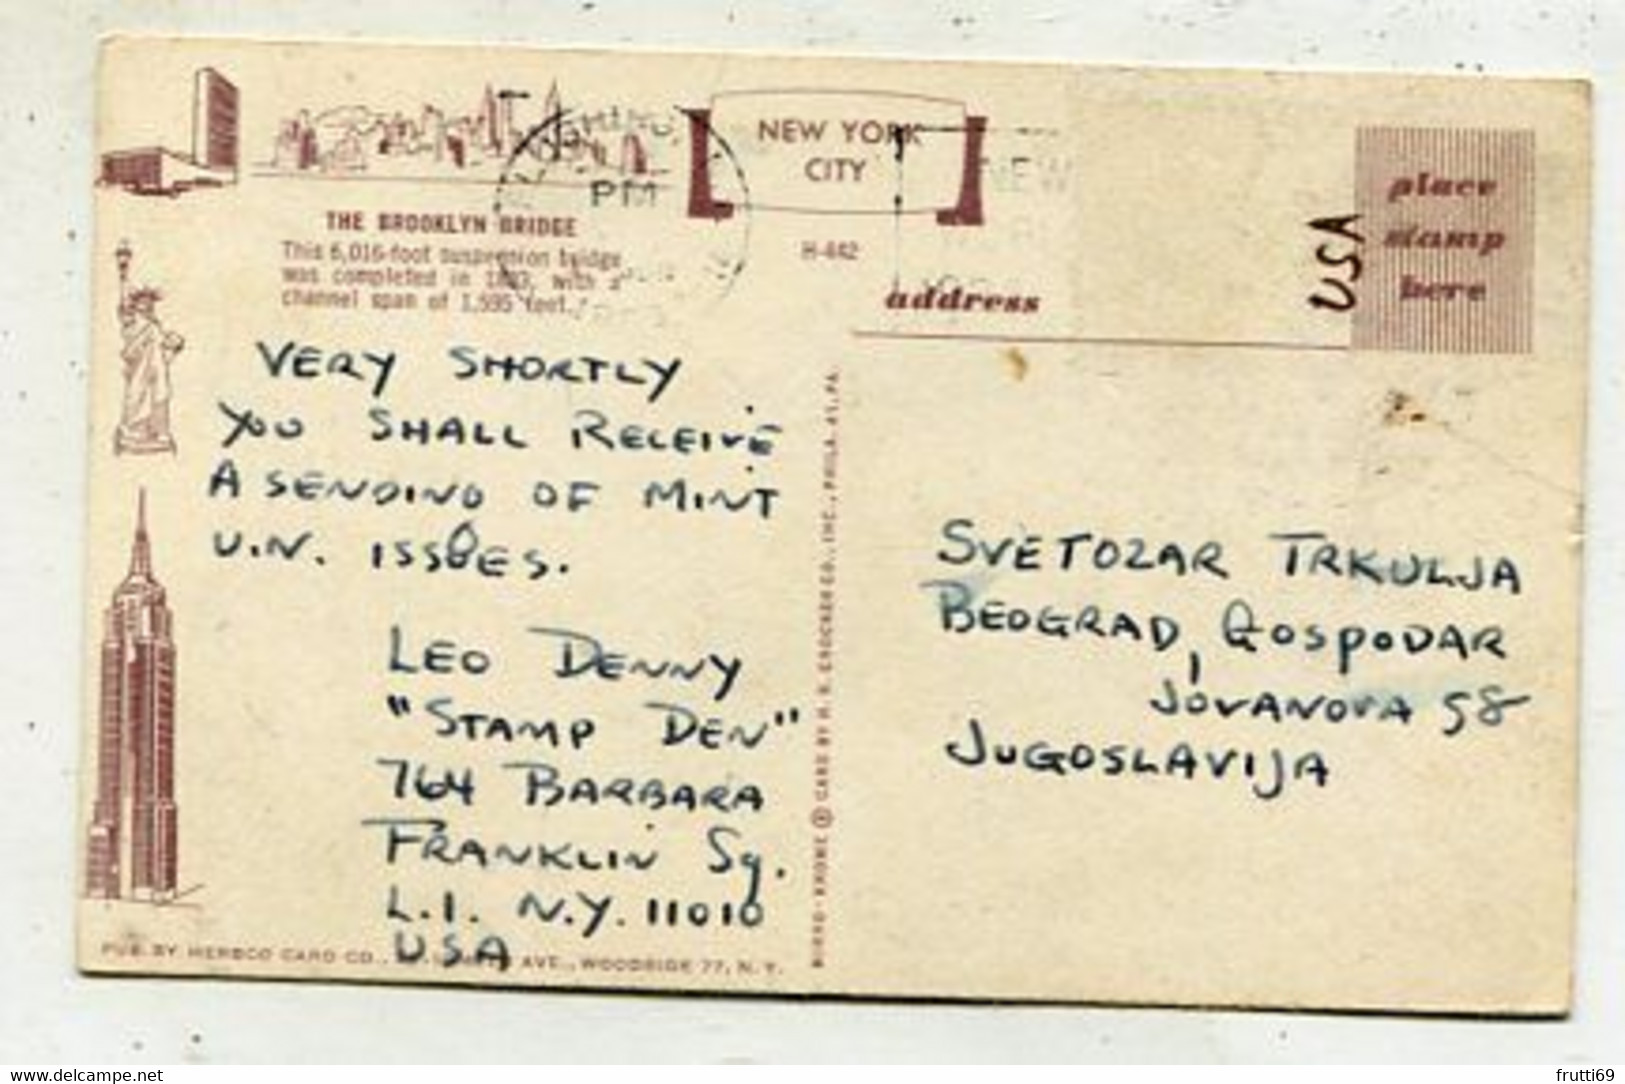 NEW YORK
CITY
THE BROOKLYN BRIDGE
This 6,016-foot suspension bridge
was completed in 1883, with a
channel span of 1,595 feet.
H-442
PM
NEW
address
USA
place
stamp
here
VERY SHORTLY
YOU SHALL RECEIVE
A SENDING OF MINT
U.N. ISSUES.
LEO DENNY
"STAMP DEN"
764 BARBARA
FRANKLIN SQ.
L.I. N.Y. 11010
USA
SVETOZAR TRKULJA
BEOGRAD, GOSPODAR
JOVANOVA 58
JUGOSLAVIJA
PUB. BY HERBCO CARD CO., AVE., WOODSIDE 77, N. Y.
KROME ® CARD BY H. S. CROCKER CO., INC., PHILA. 45, PA.
delcampe.net
frutti69